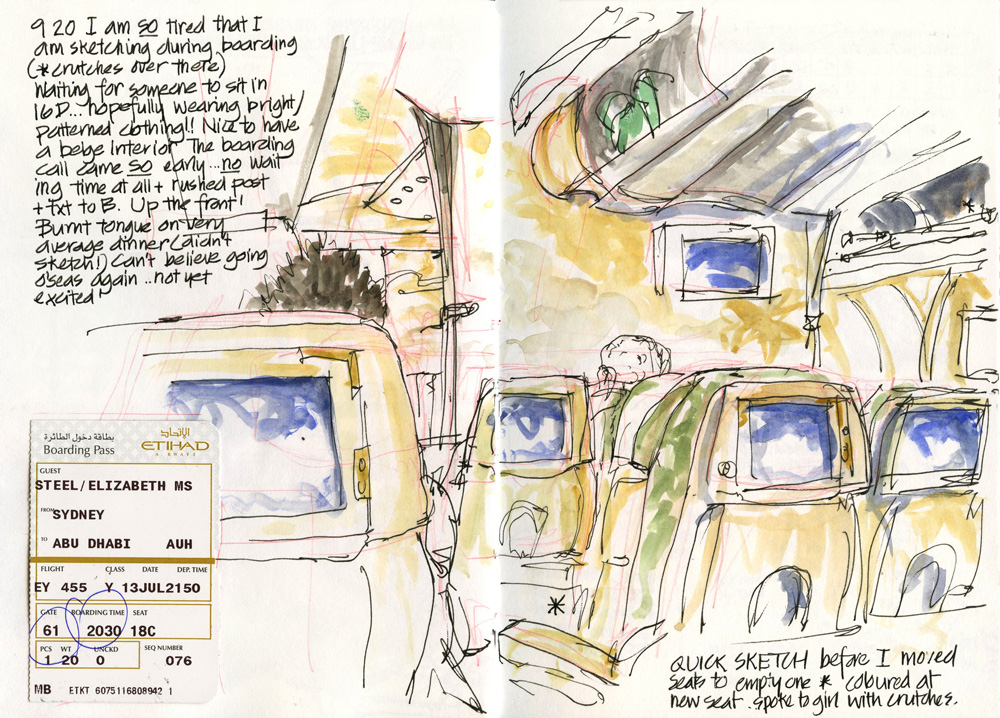 9 20 I am so tired that I
am sketching during boarding
(* crutches over there)
Waiting for someone to sit in
16D... hopefully wearing bright/
patterned clothing!! Nice to have
a beige interior The boarding
call came so early... no wait
ing time at all + rushed post
+ txt to B. Up the front!
Burnt tongue on very
average dinner (didn't
sketch!) Can't believe going
o'seas again.. not yet
excited
بطاقة دخول الطائرة
Boarding Pass
الإتحاد
ETIHAD
AIRWAYS
GUEST
STEEL/ELIZABETH MS
FROM SYDNEY
TO ABU DHABI AUH
FLIGHT CLASS DATE DEP. TIME
EY 455 Y 13JUL2150
GATE BOARDING TIME SEAT
61 2030 18C
PCS WT UNCKD SEQ NUMBER
1 20 0 076
MB ETKT 6075116808942 1
*
*
*
QUICK SKETCH before I moved
seats to empty one * coloured at
new seat. spoke to girl with crutches.